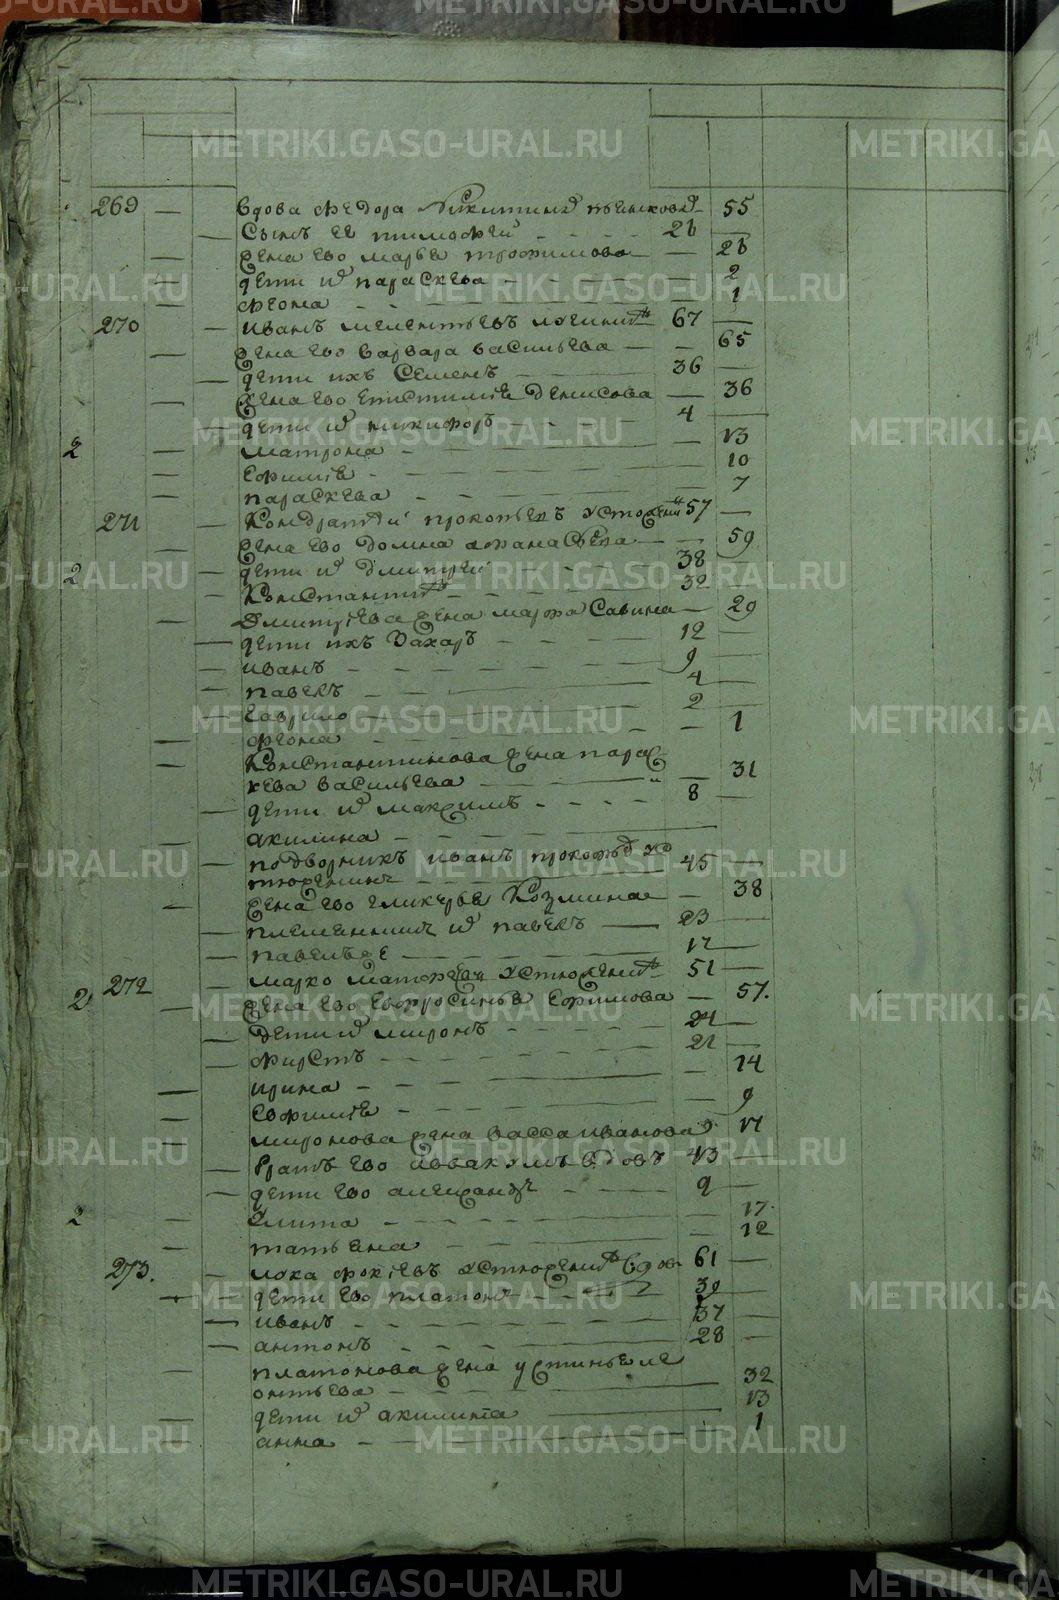 269 — вдова Федора Никитина 55
— Сынъ ее тимофеи — 26 —
— жена ево марья трофимова — — 26
— дети их параскева — — 2
— феона — — 1
270 — иванъ мелентьевъ — 67 —
— жена ево варвара васильева — — 65
— дети ихъ Семенъ — 36 —
— жена ево епистимія денисова — 36
— дети их никифоръ — 4 —
2 — матрона — — 13
— ефимія — — 10
— параскева — — 7
271 — Кондратеи прокопьевъ 57 —
— жена ево домна афанасьева — — 59
2 — дети их дмитреи — 38
— Константинъ — 32 —
— дмитріева жена марфа Савина — 29
— дети ихъ Захаръ — 12 —
— иванъ — 9
— павелъ — 4 —
— гаврило — 2 —
— феона — — 1
— Константинова жена парас
кева васильева — — 31
— дети их максимъ — 8 —
— акилина —
— подворникъ иванъ прокопьевъ ус
тюженинъ — 45 —
— жена ево гликерья Козмина — 38
— племянники их павелъ — 23 —
— павелъ же — 12 —
2 272 — марко матфеевъ устюженинъ 51 —
— жена ево евфросинья Ефимова — 57.
— дети их миронъ — 24 —
— фирстъ — 21 —
— ирина — — 14
— евфимія — — 9
— миронова жена васса иванова 17
— братъ ево аввакумъ вдовъ 43 —
— дети ево александръ — 9 —
2 — улита — 17.
— татьяна — — 12
273. — лука фокіевъ устюженинъ вдов 61 —
— дети ево платонъ — 39 —
— иванъ — 37 —
— антонъ — 28 —
— платонова жена устинья ле
онтьева — 32
— дети их акилина — 13
— анна — 1
METRIKI.GASO-URAL.RU